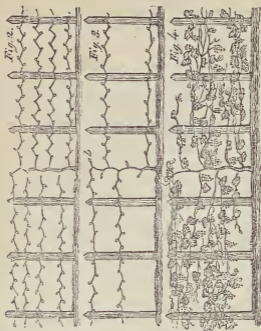 Fig. 2.
Fig. 3.
Fig. 4.